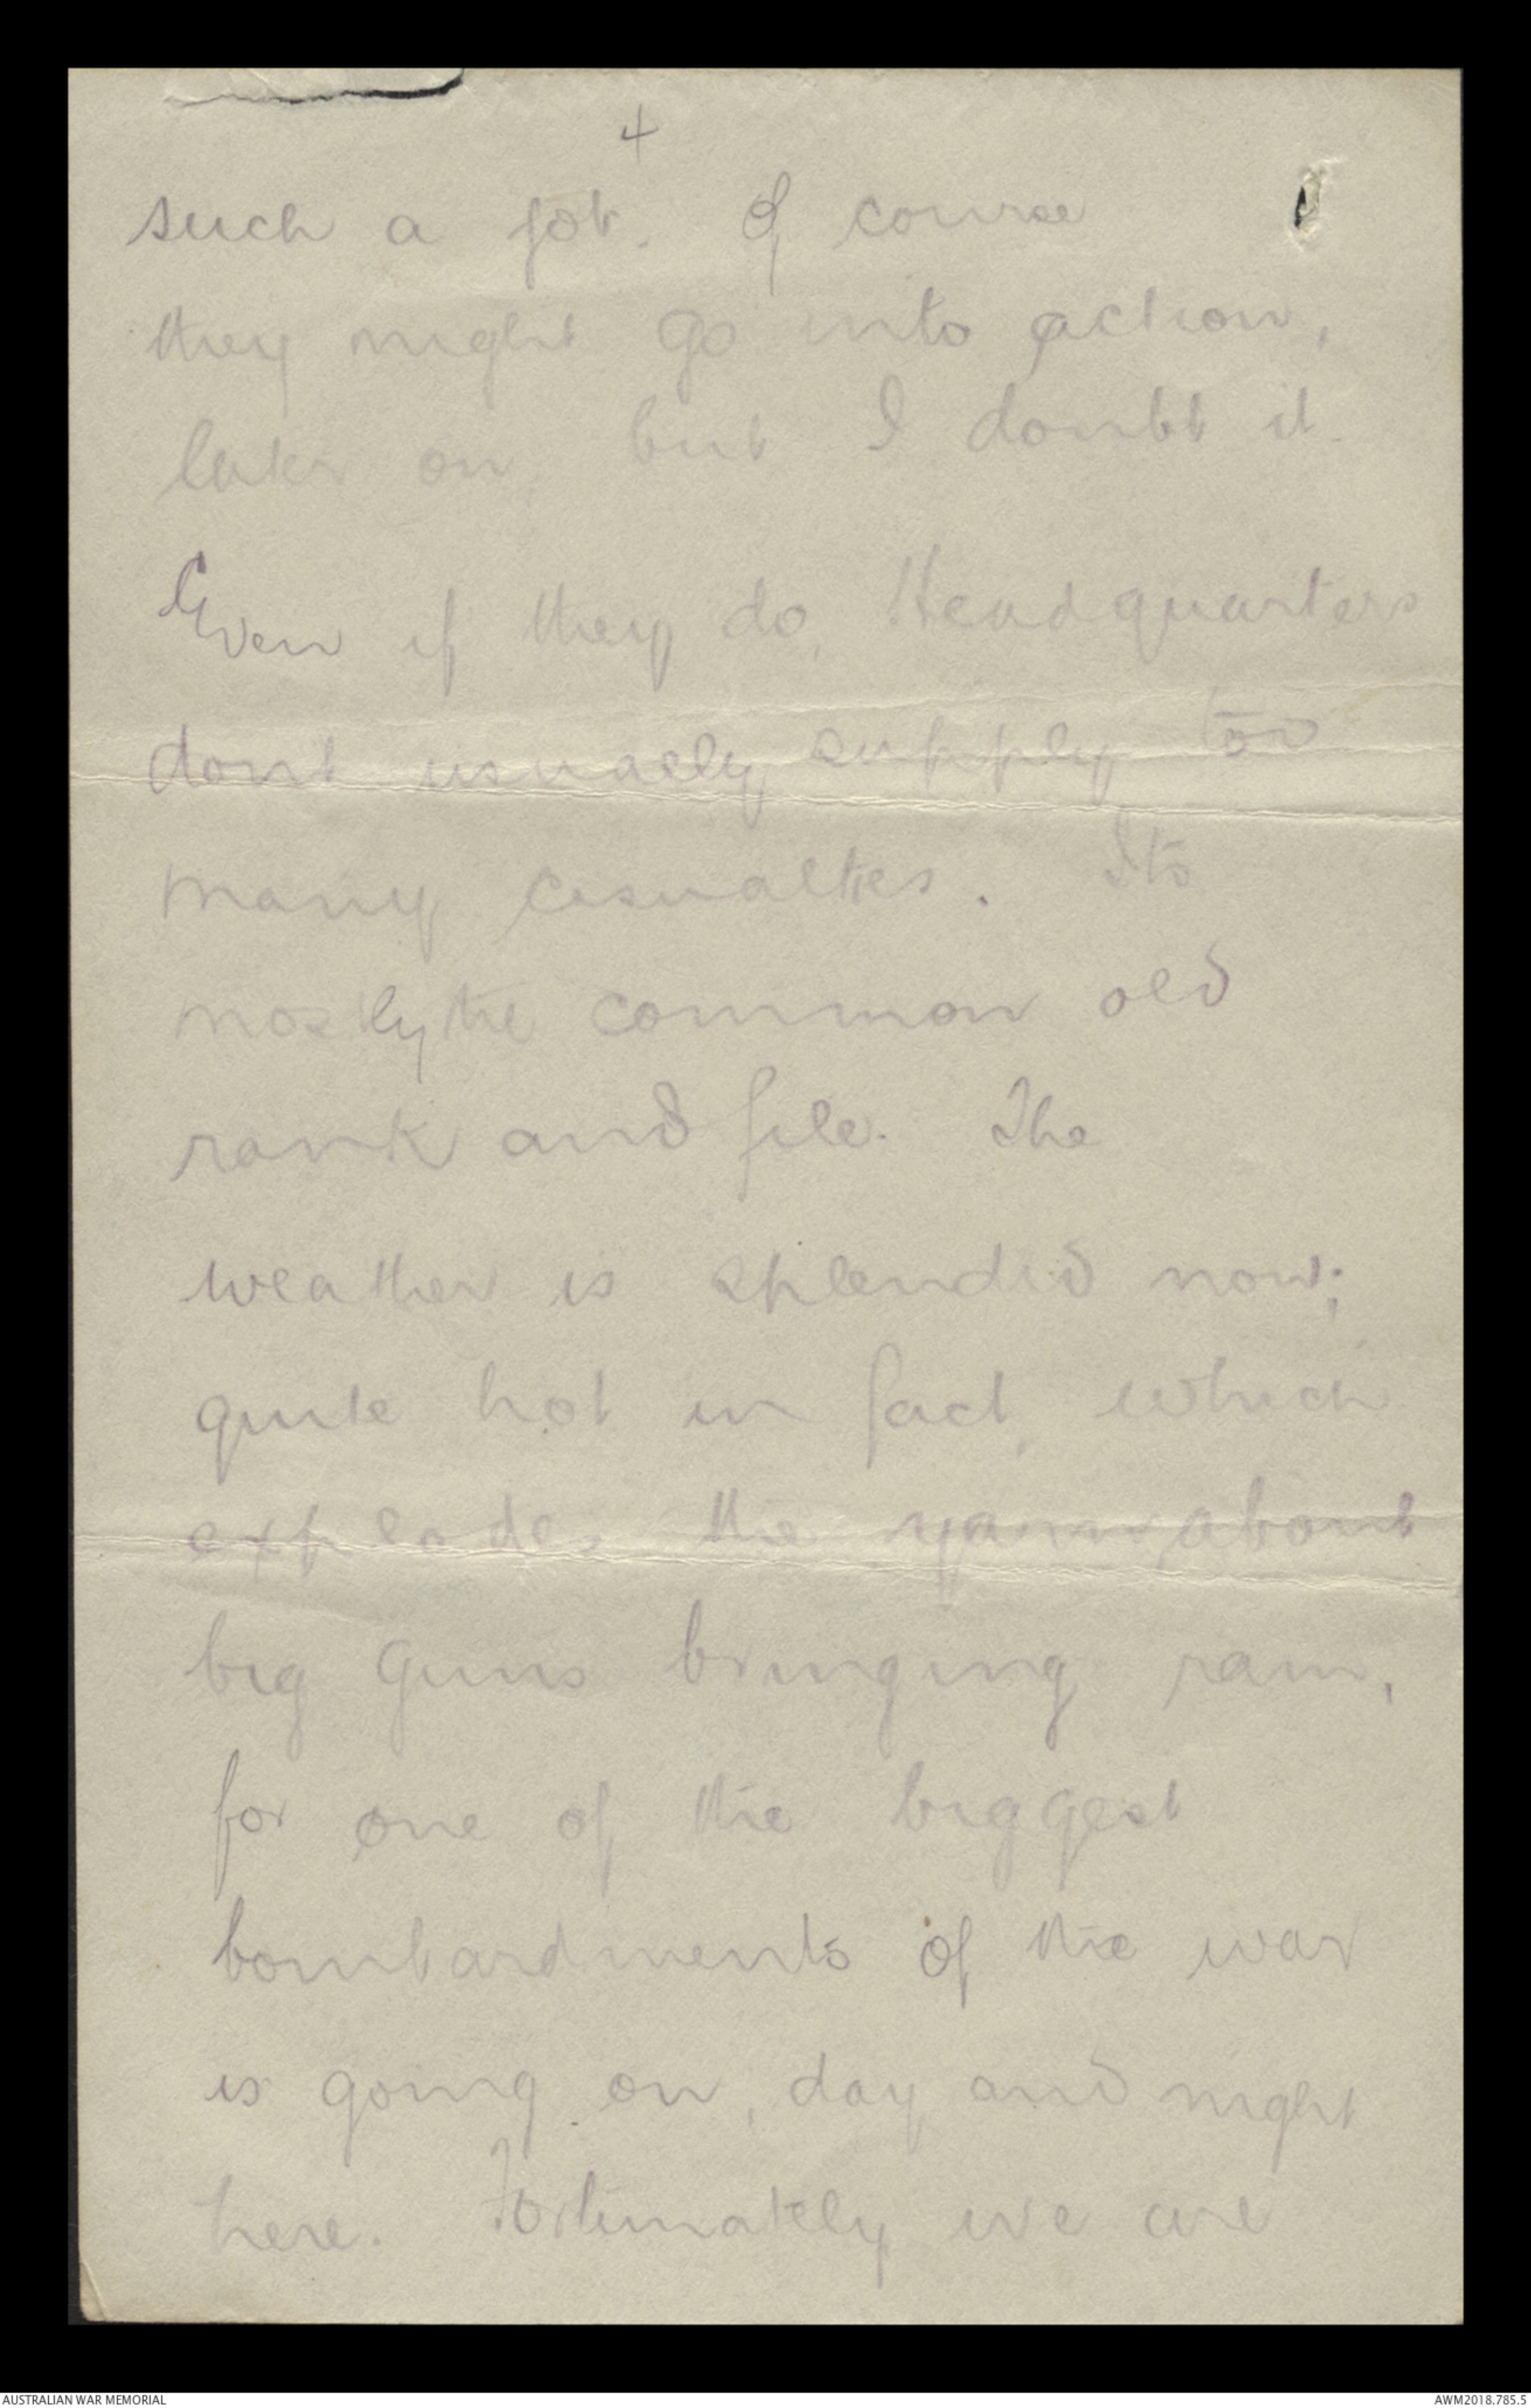 4
such a job. Of course
they might go into action,
later on, but I doubt it.
Even if they do, Headquarters
dont usually supply too
many casualties. Its
mostly the common old
rank and file. The
weather is splendid now;
quite hot in fact, which
explodes the yarn about
big guns bringing rain,
for one of the biggest
bombardments of the war
is going on, day and night
here. Fortunately we are
AUSTRALIAN WAR MEMORIAL
AWM2018.785.5